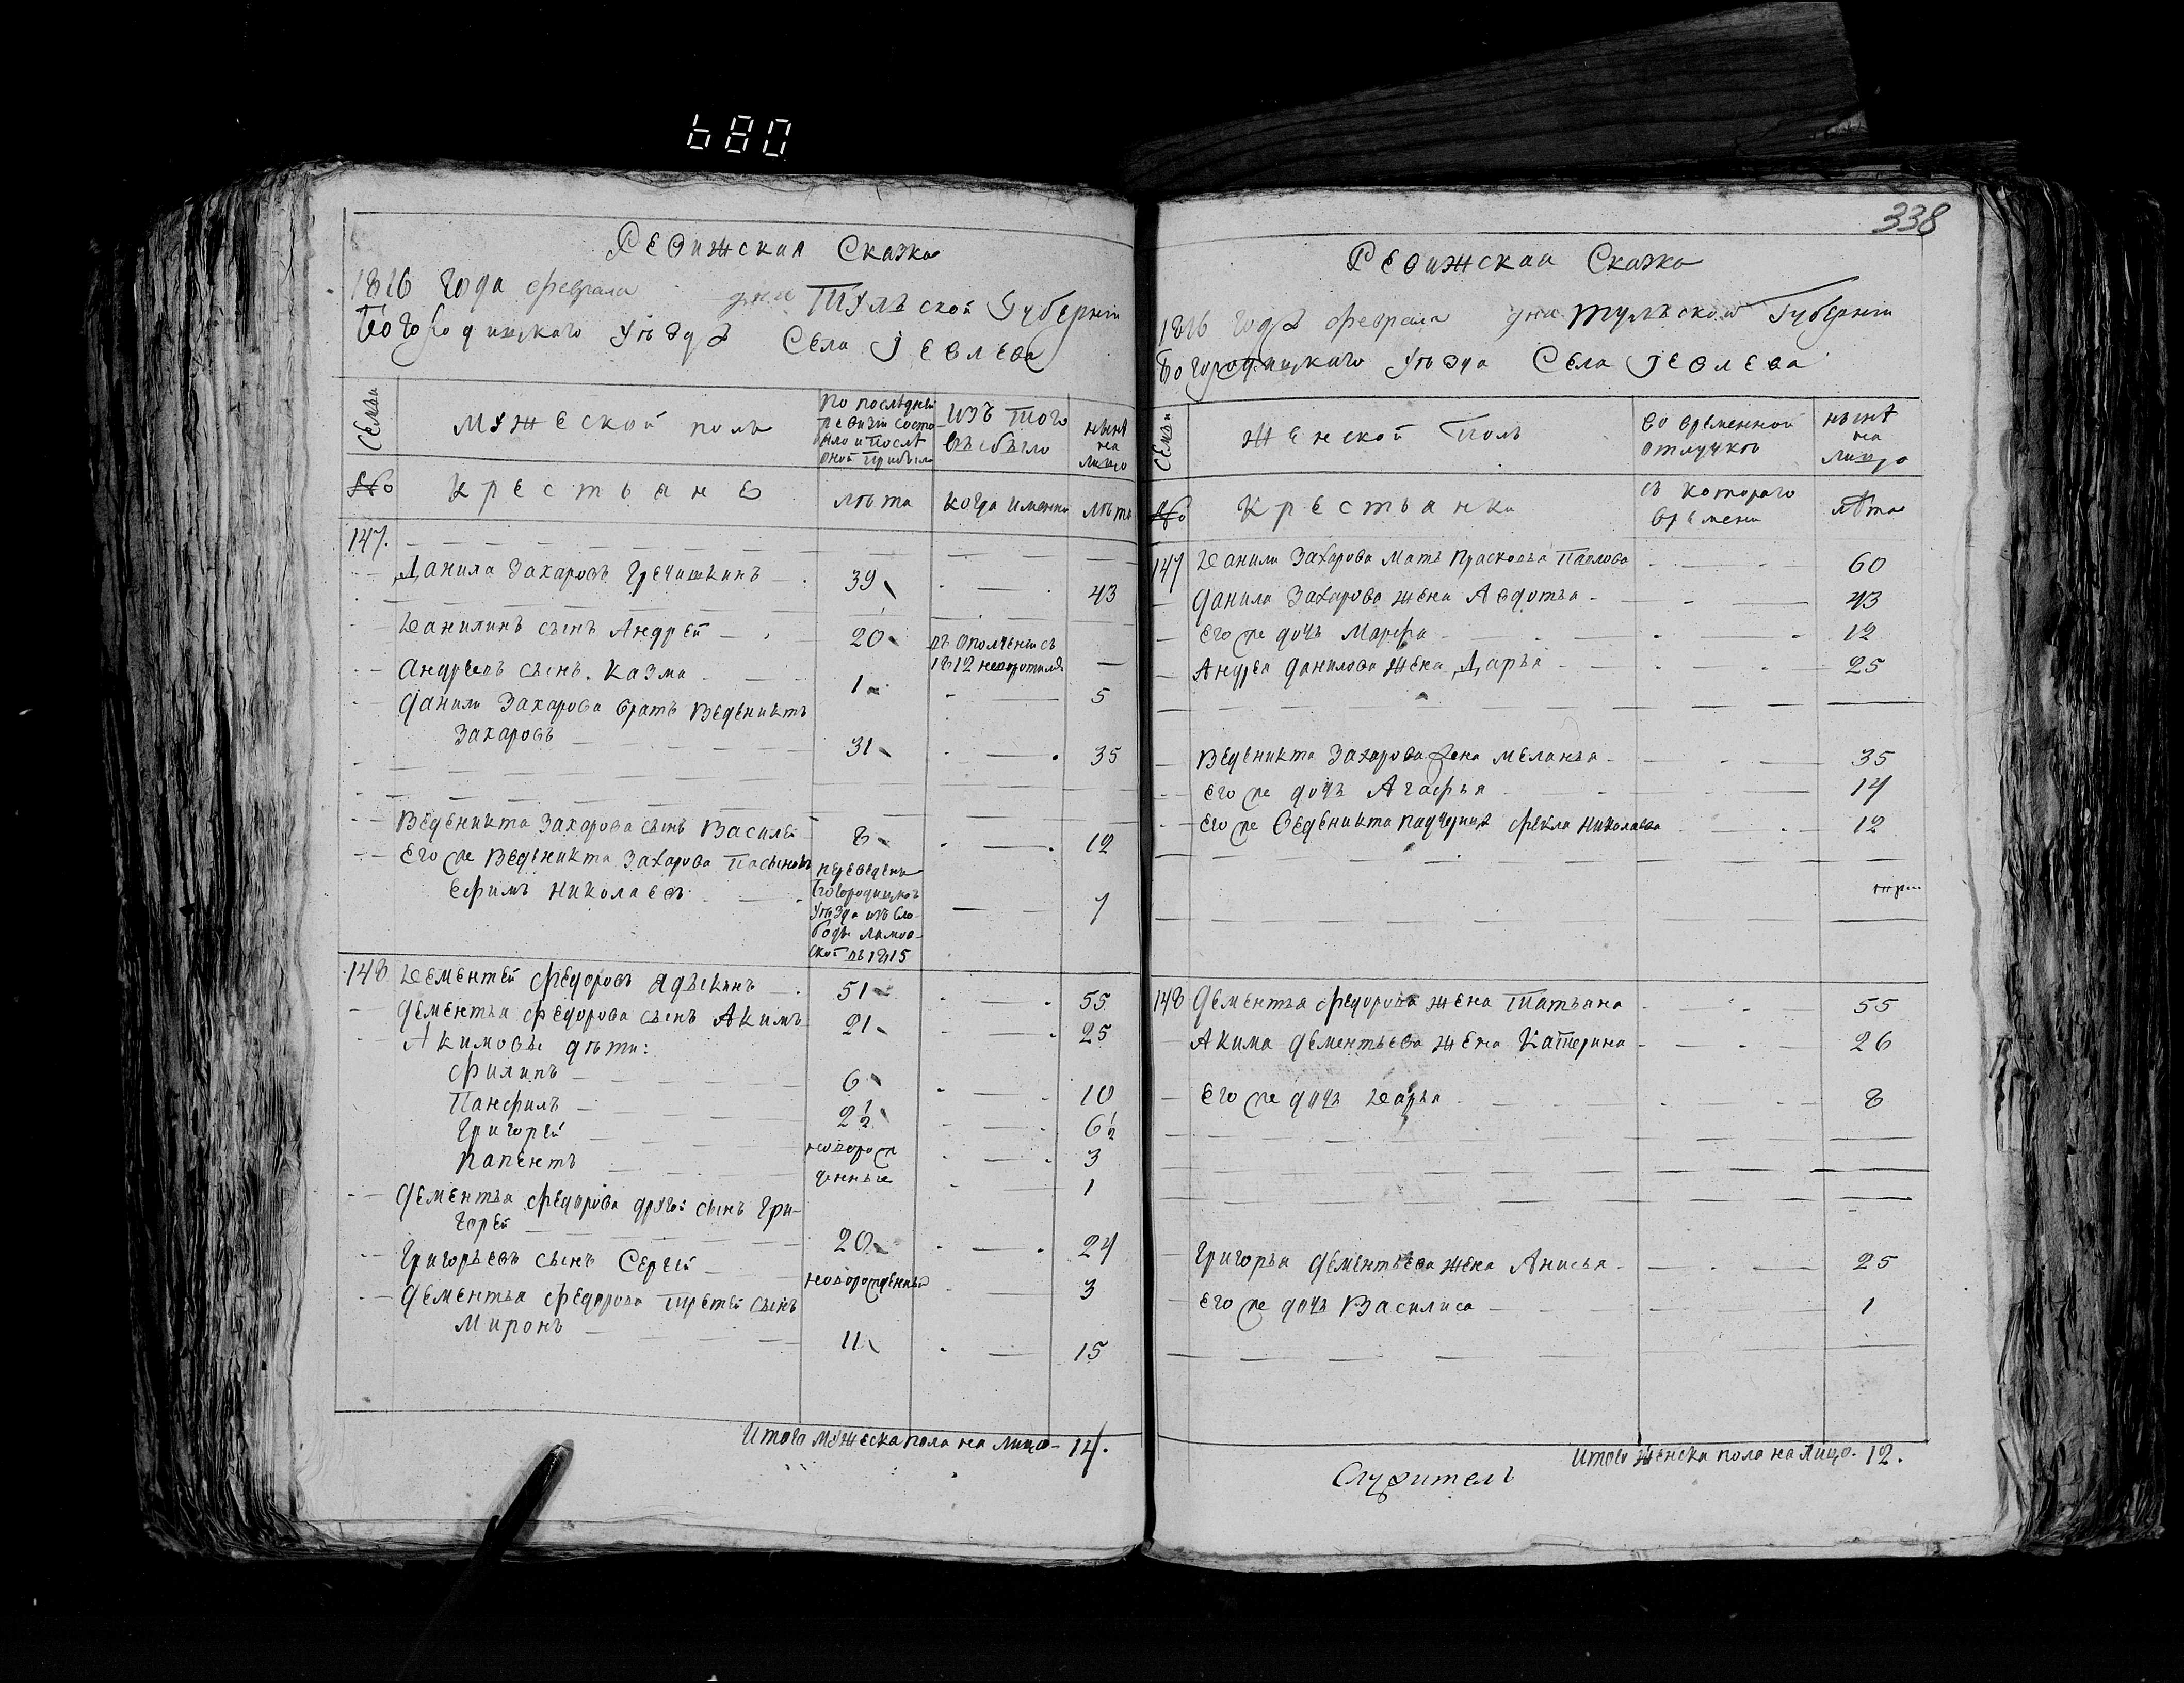 680
Ревижская Сказка
1816 года февраля дня Тульской Губернiи
Богородицкаго уѣзда Села Iевлева
Семьи
мужеской полъ
по последней
ревизiи состо-
яло и послѣ
оной прибыло
изъ того
выбыло
нынѣ
на
лицо
№
Крестьяне
лѣта
когда именно
лѣта
147.
Данила Захаровъ Гречишкинъ 39 43
Данилинъ сынъ Андрей 20 въ ополчении съ
1812 неворотился
Андреевъ сынъ Казма 1 5
Данилы Захарова братъ Веденихтъ
Захаровъ 31 35
Веденихта Захарова сынъ Василей 8 12
Его же Веденихта Захарова пасынокъ
Ефимъ Николаевъ
переведенъ
Богородицкаго
уѣзда изъ сло-
боды
ской въ 1815
7
148 Дементей Федоровъ Адъкинъ 51 55
Дементья Федорова сынъ Акимъ 21 25
Акимовы дѣти:
Филипъ 6 10
Панфилъ 2½ 6½
Григорей новорож 3
Капентъ денные 1
Дементья Федорова другой сынъ Гри-
горей 20 24
Григорьевъ сынъ Сергей новорожденный 3
Дементья Федорова третей сынъ
Миронъ 11 15
Итого мужеска пола на лицо - 14.
338
Ревижская Сказка
1816 года февраля дня Тульской Губернiи
Богородицкаго уѣзда Села Iевлева
Семьи
Женской Полъ
во временной
отлучкѣ
нынѣ
на
лицо
№
Крестьянки
съ котораго
времени
лѣта
147 Данилы Захарова мать Прасковья Павлова 60
Данила Захарова жена Авдотья 43
Его же дочь Марфа 12
Андрея Данилова жена Дарья 25
Веденихта Захарова жена Меланья 35
Его же дочь Агафья 14
Его же Веденихта падчерица Фекла Николаева 12
148 Дементья Федорова жена Татьяна 55
Акима Дементьева жена Катерина 26
Его же дочь Дарья 8
Григорья Дементьева жена Анисья 25
Его же дочь Василиса 1
Итого женска пола на лицо - 12.
Служитель